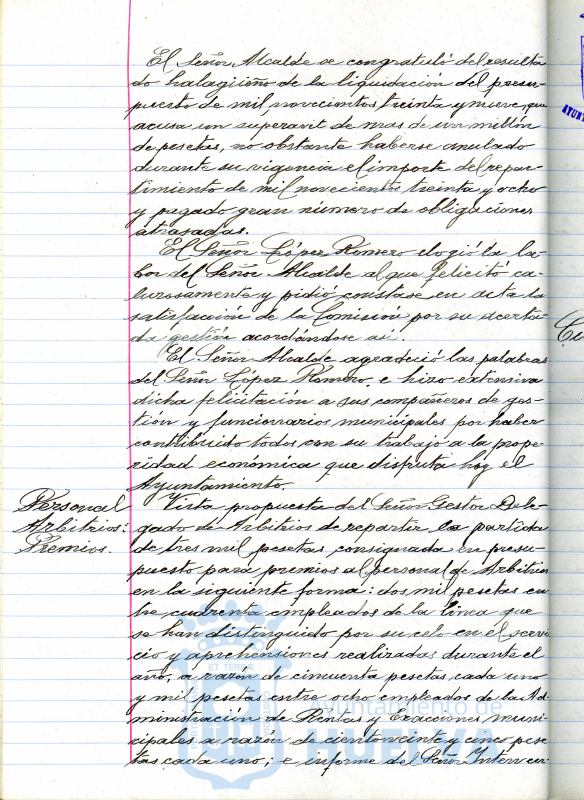 El Señor Alcalde se congratuló del resulta
do halagüeño de la liquidación del presu-
puesto de mil, novecientos treinta y nueve, que
acusa un superavit de mas de un millón
de pesetas, no obstante haberse anulado
durante su vigencia el importe del repar-
timiento de mil novecientos treinta y ocho
y pagado gran número de obligaciones
atrasadas.
El Señor López Romero elogió la la-
bor del Señor Alcalde al que felicitó ca-
lurosamente y pidió constase en acta la
satisfacción de la Comisión por su acerta-
da gestión acordándose así.
El Señor Alcalde agradeció las palabras
del Señor López Romero, e hizo extensiva
dicha felicitación a sus compañeros de ges-
tión y funcionarios municipales por haber
contribuido todos con su trabajo a la prope-
ridad economica que disfruta hoy el
Ayuntamiento.
Personal
Arbitrios:
Premios.
Vista propuesta del Señor Gestor Dele-
gado de Arbitrios de repartir la partida
de tres mil pesetas consignada en presu-
puesto para premios al personal de Arbitrios
en la siguiente forma: dos mil pesetas en
tre cuarenta empleados de la linea que
se han distinguido por su celo en el servi
cio y aprehensiones realizadas durante el
año, a razón de cincuenta pesetas cada uno
y mil pesetas entre ocho empleados de la Ad-
ministración de Rentas y Exacciones muni-
cipales a razón de ciento veinte y cinco pese
tas cada uno; e informe del Señor Interven-
ET TERRAE
Ayuntamiento de
HUELVA
AYUNT